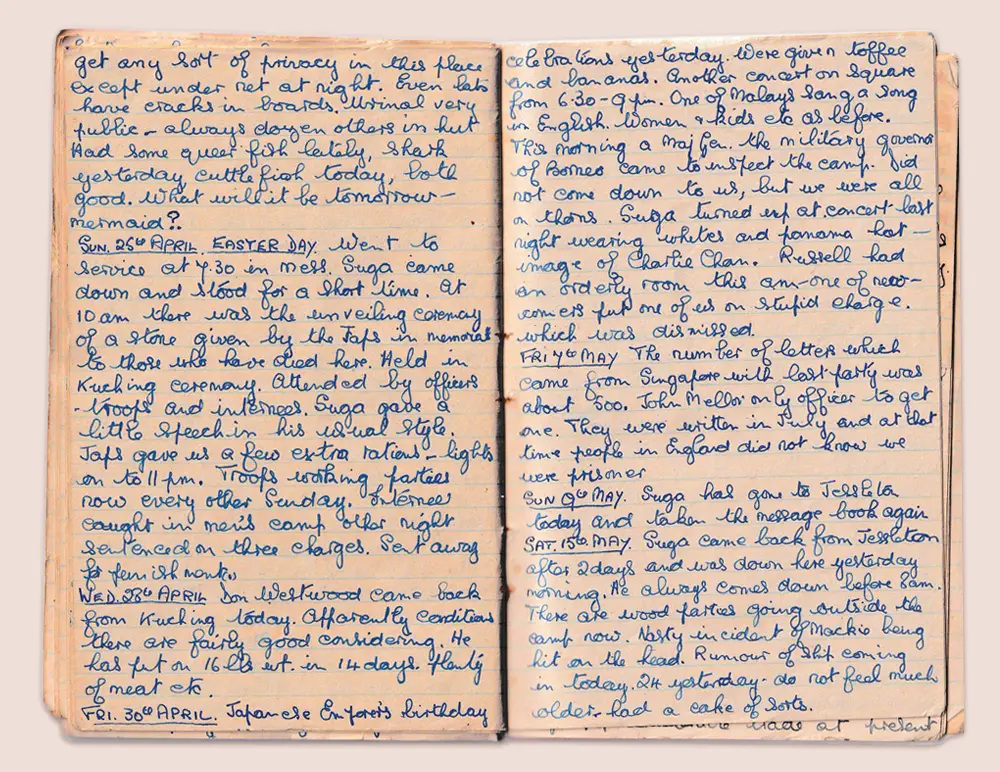 get any sort of privacy in this place
except under net at night. Even lats
have cracks in boards. Urinal very
public – always dozen others in hut
Had some queer fish lately, shark
yesterday, cuttlefish today, both
good. What will it be tomorrow –
mermaid?
SUN. 25th APRIL. EASTER DAY. Went to
service at 7.30 in mess. Suga came
down and stood for a short time. At
10 am there was the unveiling ceremony
of a stone given by the Japs in memorial
to those who have died here. Held in
Kuching ceremony. Attended by officers
troops and internees. Suga gave a
little speech in his usual style.
Japs gave us a few extra rations – lights
on to 11 pm. Troops working parties
now every other Sunday. Internee
caught in men's camp other night
sentenced on three charges. Sent away
for month.
WED. 28th APRIL Don Westwood came back
from Kuching today. Apparently conditions
there are fairly good considering. He
has put on 16 lbs wt. in 14 days. Plenty
of meat etc.
FRI. 30th APRIL. Japanese Emperor's birthday
celebrations yesterday. Were given toffee
and bananas. Another concert on square
from 6.30 – 9 pm. One of Malays sang a song
in English. Women & kids etc as before.
This morning a Maj Gen. the military governor
of Borneo came to inspect the camp. Did
not come down to us, but we were all
on thorns. Suga turned up at concert last
night wearing whites and panama hat –
image of Charlie Chan. Russell had
an orderly room this am – one of new-
comers put one of us on stupid charge.
which was dismissed.
FRI 7th MAY The number of letters which
came from Singapore with last party was
about 500. John Mellor only officer to get
one. They were written in July and at that
time people in England did not know we
were prisoner
SUN 9th MAY. Suga has gone to Jesselton
today and taken the message book again
SAT. 15th MAY. Suga came back from Jesselton
after 2 days and was down here yesterday
morning. He always comes down before 8am.
There are wood parties going outside the
camp now. Nasty incident of Mackie being
hit on the head. Rumour of ship coming
in today. 24 yesterday – do not feel much
older – had a cake of sorts.
at present